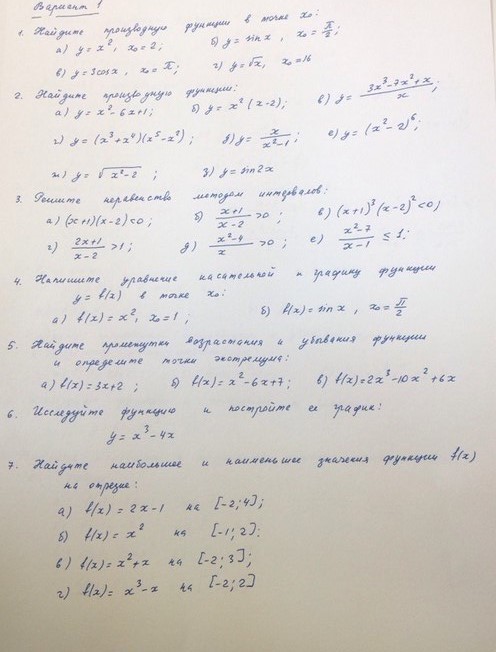 Вариант 1
1. Найдите производную функции в точке x₀:
а) y = x², x₀ = 2; б) y = sin x, x₀ = π/2;
в) y = 3cosx, x₀ = π; г) y = √x, x₀ = 16
2. Найдите производную функции:
а) y = x² - 6x + 1; б) y = x² (x - 2); в) y = (3x³ - 7x² + x)/x;
г) y = (x³ + x⁴)(x⁵ - x²); д) y = x/(x² - 1); е) y = (x² - 2)⁶;
ж) y = √(x² - 2) ; з) y = sin2x
3. Решите неравенство методом интервалов:
а) (x+1)(x-2) < 0; б) (x+1)/(x-2) > 0; в) (x+1)³(x-2)² < 0;
г) (2x+1)/(x-2) > 1; д) (x²-4)/x > 0; е) (x²-7)/(x-1) ≤ 1.
4. Напишите уравнение касательной к графику функции
y = f(x) в точке x₀:
а) f(x) = x², x₀ = 1 ; б) f(x) = sin x, x₀ = π/2
5. Найдите промежутки возрастания и убывания функции
и определите точки экстремума:
а) f(x) = 3x + 2 ; б) f(x) = x² - 6x + 7; в) f(x) = 2x³ - 10x² + 6x
6. Исследуйте функцию и постройте ее график:
y = x³ - 4x
7. Найдите наибольшее и наименьшее значения функции f(x)
на отрезке:
а) f(x) = 2x - 1 на [-2; 4];
б) f(x) = x² на [-1; 2].
в) f(x) = x² + x на [-2; 3];
г) f(x) = x³ - x на [-2; 2]